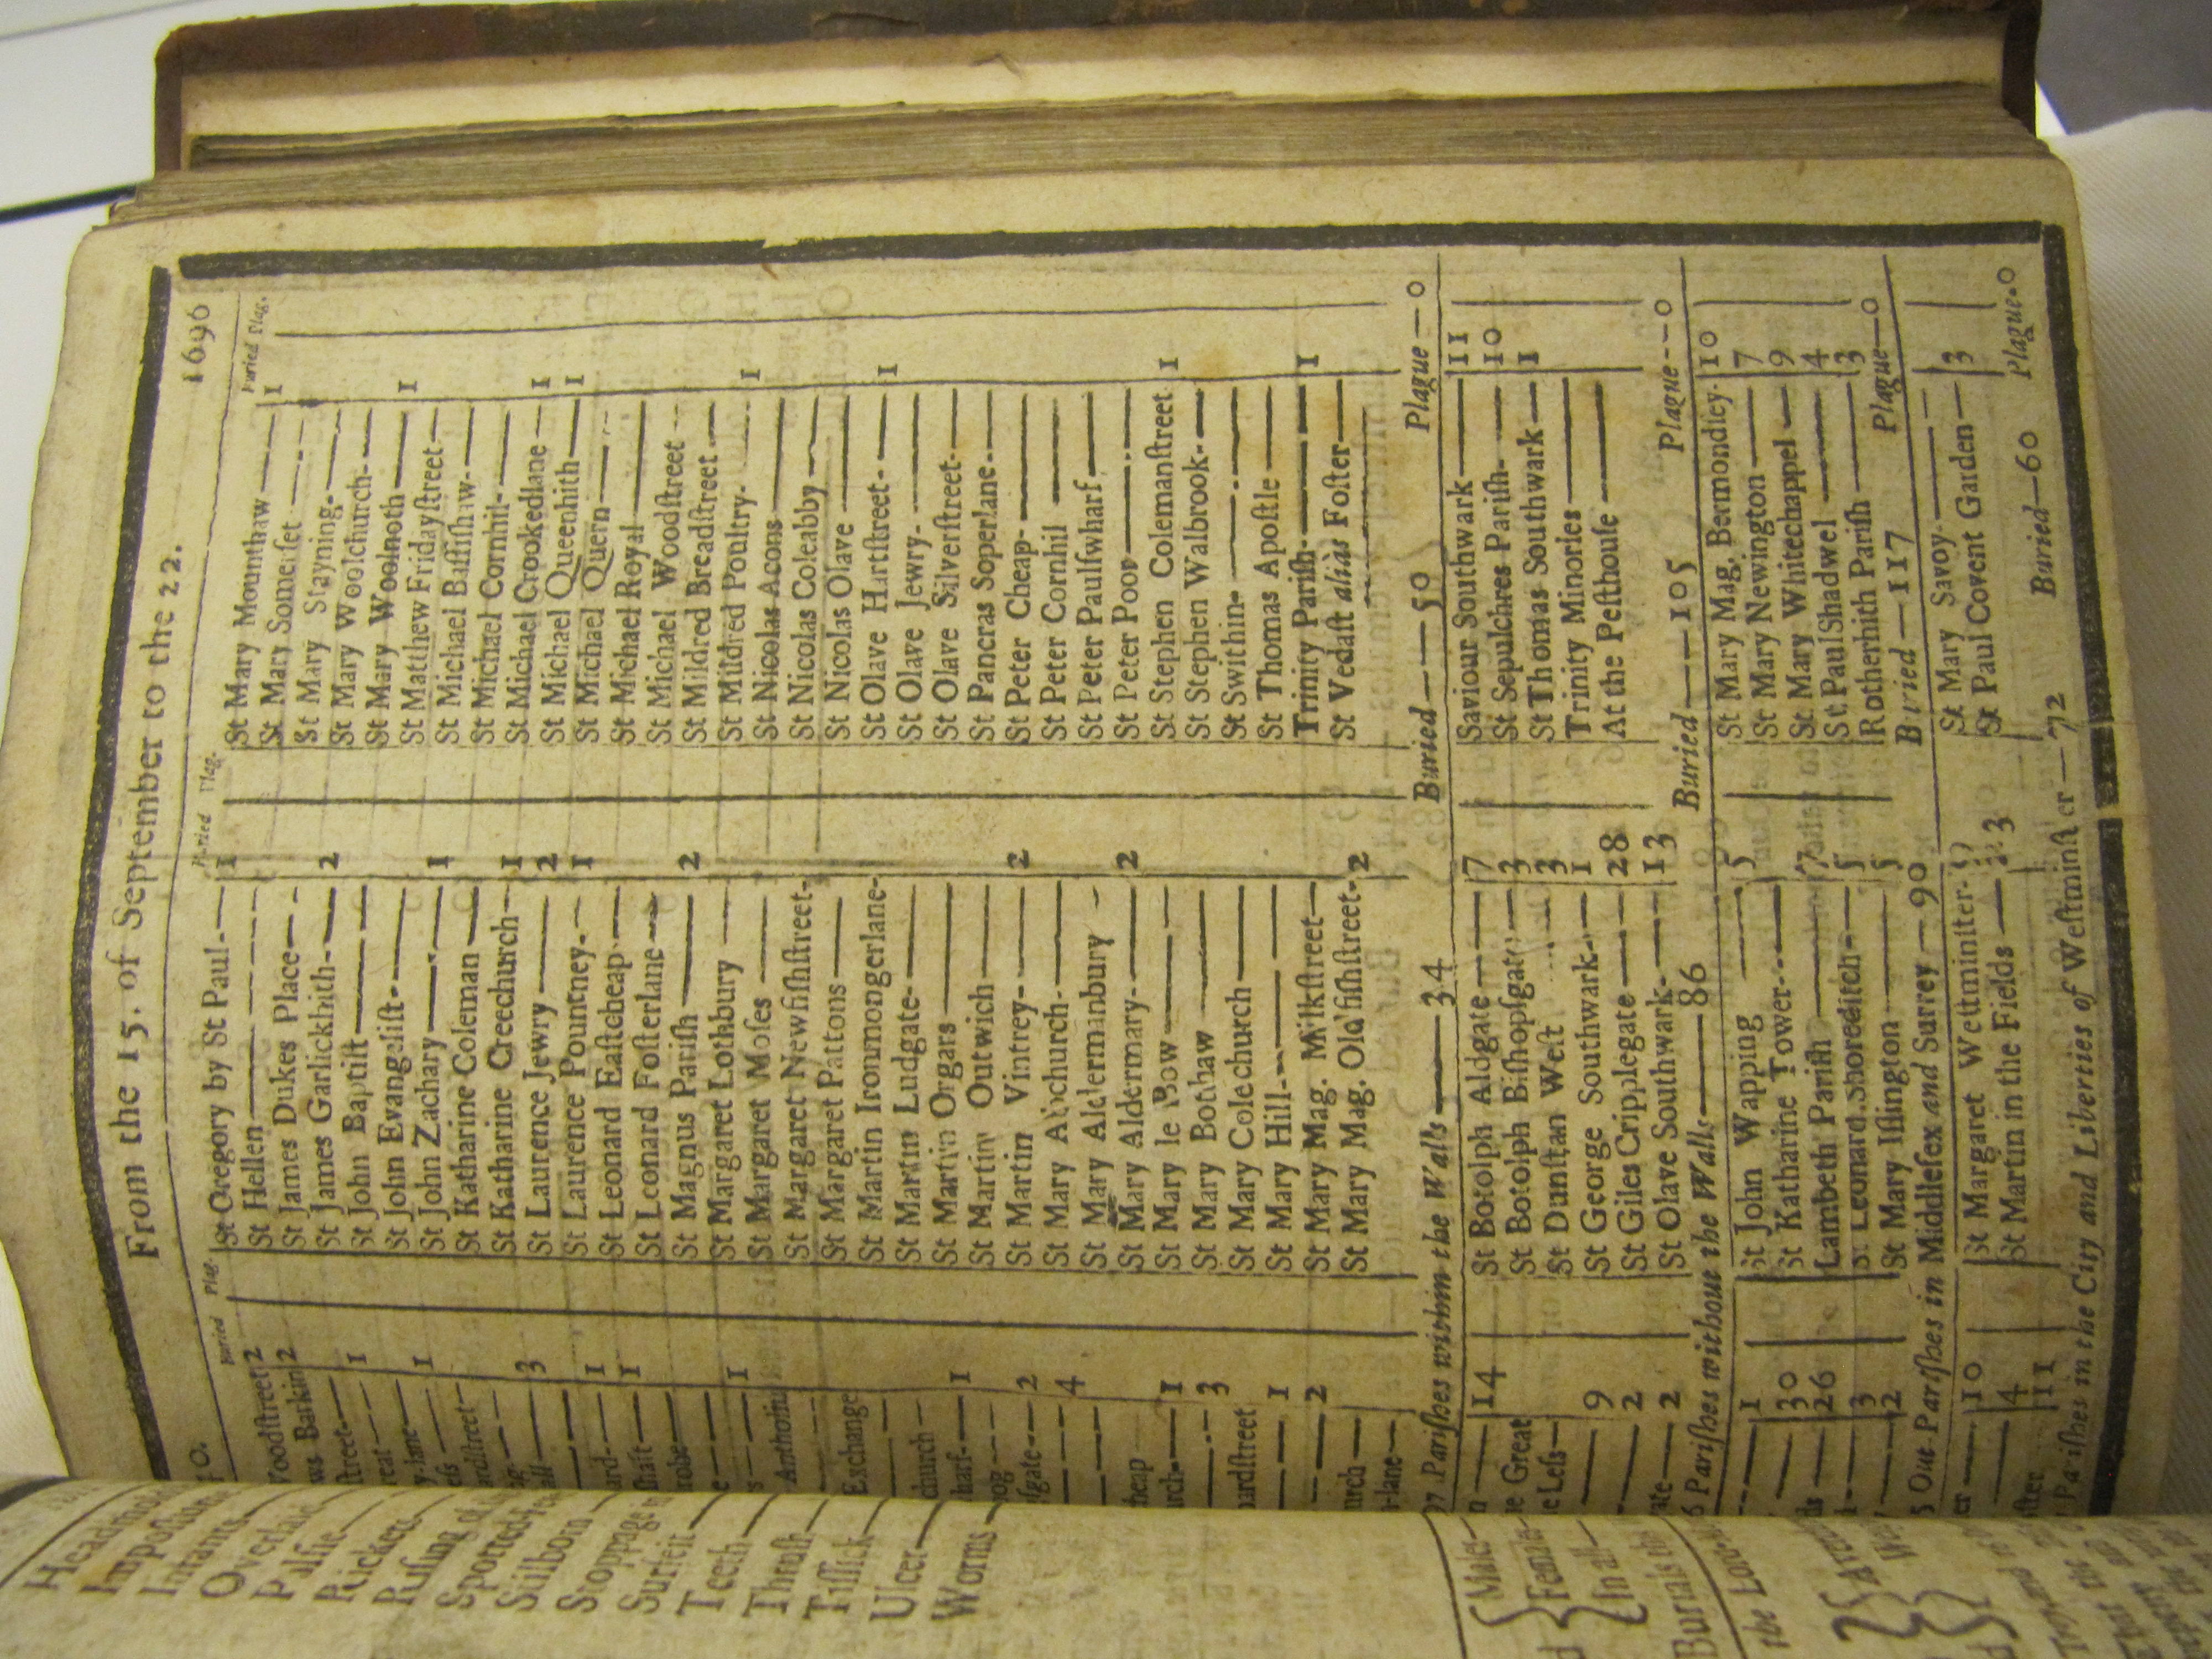 From the 15. of September to the 22. 1696
Buried Plag.
Voodſtreet 2
ws Barkin 2
ſtreet— 1
reat
y-lane— 1
eſs
ardſtreet—
ag.
all— 3
ard— 1
ſhaft— 1
robe
e
s— 1
Antholin
Exchange
church—
harf— 1
og
ſgate— 2
4
heap
rch— 1
3
bardſtreet
1
2
urch
-lane—
Buried Plag.
St Gregory by St Paul— 1
St Hellen
St James Dukes Place—
St James Garlickhith— 2
St John Baptiſt
St John Evangeliſt
St John Zachary— 1
St Katharine Coleman
St Katharine Creechurch— 1
St Laurence Jewry— 2
St Laurence Pountney— 1
St Leonard Eaſtcheap
St Leonard Foſterlane
St Magnus Pariſh— 2
St Margaret Lothbury
St Margaret Moſes
St Margaret Newfiſhſtreet-
St Margaret Pattons
St Martin Ironmongerlane-
St Martin Ludgate-
St Martin Orgars
St Martin Outwich
St Martin Vintrey— 2
St Mary Abchurch-
St Mary Aldermanbury
St Mary Aldermary— 2
St Mary le Bow
St Mary Bothaw
St Mary Colechurch
St Mary Hill
St Mary Mag. Milkſtreet—
St Mary Mag. Oldfiſhſtreet- 2
Buried Plag.
St Mary Mounthaw— 1
St Mary Somerſet
St Mary Stayning-
St Mary Woolchurch-
St Mary Woolnoth— 1
St Matthew Fridayſtreet—
St Michael Baſſiſhaw-
St Michael Cornhil-
St Michael Crookedlane— 1
St Michael Queenhith— 1
St Michael Quern
St Michael Royal
St Michael Woodſtreet
St Mildred Breadſtreet
St Mildred Poultry- 1
St Nicolas Acons
St Nicolas Coleabby
St Nicolas Olave
St Olave Hartſtreet- 1
St Olave Jewry-
St Olave Silverſtreet-
St Pancras Soperlane-
St Peter Cheap-
St Peter Cornhil
St Peter Paulſwharf
St Peter Poor
St Stephen Colemanſtreet 1
St Stephen Walbrook-
St Swithin-
St Thomas Apoſtle
Trinity Pariſh- 1
St Vedaſt aliàs Foſter
97 Pariſhes within the Walls— 34 Buried— 50 Plague—0
14
ne Great
e Leſs
9
2
ate— 2
St Botolph Aldgate— 7
St Botolph Biſhopſgate— 3
St Dunſtan Weſt 3
St George Southwark- 1
St Giles Cripplegate— 28
St Olave Southwark- 13
Saviour Southwark— 11
St Sepulchres Pariſh- 10
St Thomas Southwark— 1
Trinity Minories
At the Peſthouſe
6 Pariſhes without the Walls— 86 Buried— 105 Plague--0
1
30
26
3
2
St John Wapping 5
St Katharine Tower-
Lambeth Pariſh 17
St Leonard Shoreditch- 5
St Mary Iſlington 5
St Mary Mag. Bermondſey- 10
St Mary Newington 7
St Mary Whitechappel— 9
St Paul Shadwel 4
Rotherhith Pariſh 3
5 Out-Pariſhes in Middleſex and Surrey— 90 Buried— 117 Plague—0
er— 10
4
11
St Margaret Weſtminſter-
St Martin in the Fields—
St Mary Savoy-
St Paul Covent Garden— 3
Pariſhes in the City and Liberties of Weſtminſter— 72 Buried—60 Plague-0
Head
Impoſthu
Infants
Overlaid
Palſie
Rickets
Riſing of
Spotted-Fe
Stilborn
Stoppage
Surfeit
Teeth
Thruſh
Tiſſick
Ulcer
Worms
Males
Females
In all
Burials
the Low